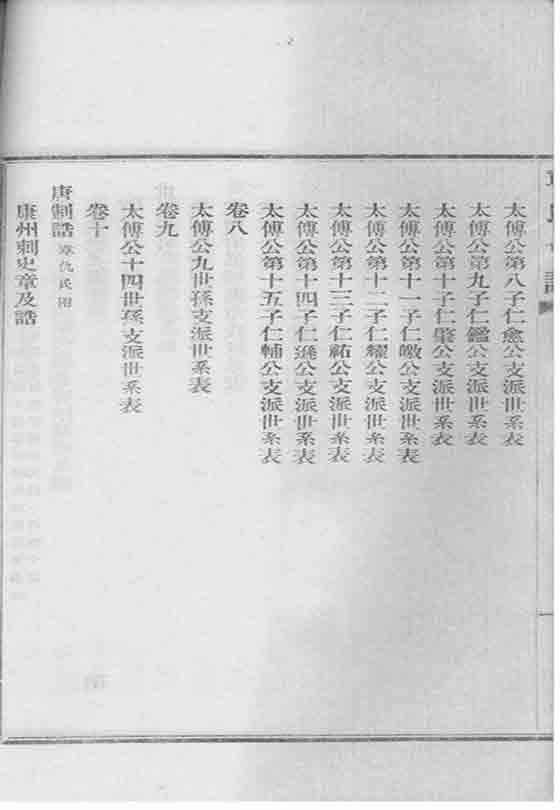 太傅公第八子仁愈公支派世系表
太傅公第九子仁鑑公支派世系表
太傅公第十子仁肇公支派世系表
太傅公第十一子仁皦公支派世系表
太傅公第十二子仁耀公支派世系表
太傅公第十三子仁祐公支派世系表
太傅公第十四子仁遜公支派世系表
太傅公第十五子仁輔公支派世系表
卷八
太傅公九世孫支派世系表
卷九
太傅公十四世孫支派世系表
卷十
唐制誥 仇氏附
康州刺史章及誥